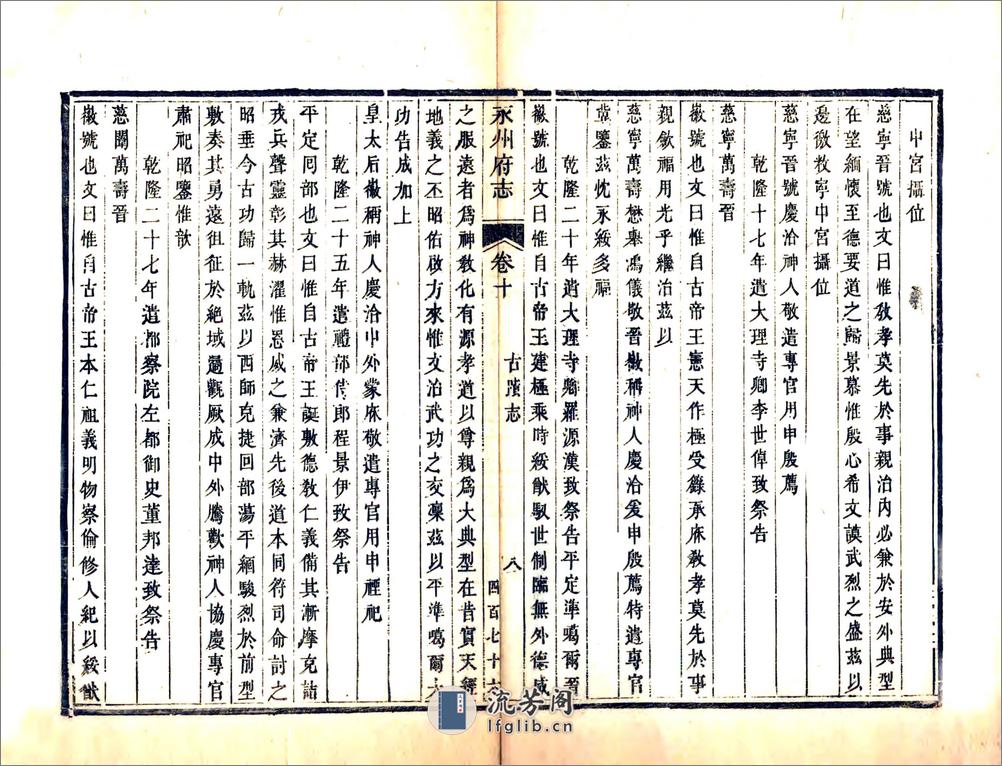 中宮攝位
慈寧晉號也文曰惟敎孝莫先於事親治內必兼於安外典型
在望緬懷至德要道之歸景慕惟殷心希文謨武烈之盛茲以
邊徼敉寧中宮攝位
慈寧晉號慶洽神人敬遣專官用申殷薦
乾隆十七年遣大理寺卿李世倬致祭告
慈寧萬壽晉
徽號也文曰惟自古帝王憲天作極受籙承庥敎孝莫先於事
親斂福用光乎繼治茲以
慈寧萬壽懋舉鴻儀敬晉徽稱神人慶洽爰申殷薦特遣專官
冀鑒茲忱永綏多福
乾隆二十年遣大理寺卿羅源漢致祭告平定準噶爾晉
徽號也文曰惟自古帝王建極乘時綏猷馭世制臨無外德威
永州府志
卷十
古蹟志
八
四百七十六
之服遠者爲神敎化有源孝道以尊親爲大典型在昔實天經
地義之丕昭佑啟方來惟文治武功之交稟茲以平準噶爾大
功告成加上
皇太后徽稱神人慶洽中外蒙庥敬遣專官用申禋祀
乾隆二十五年遣禮部侍郎程景伊致祭告
平定囘部也文曰惟自古帝王誕敷德敎仁義備其漸摩克詰
戎兵聲靈彰其赫濯惟恩威之兼濟先後道本同符司命討之
昭垂今古功歸一軌茲以西師克捷回部蕩平緬駿烈於前型
敷奏其勇遠徂征於絕域遹觀厥成中外騰歡神人協慶專官
肅祀昭鑒惟歆
乾隆二十七年遣都察院左都御史董邦達致祭告
慈闈萬壽晉
徽號也文曰惟自古帝王本仁祖義明物察倫修人紀以綏猷
流芳阁
lfglib.cn